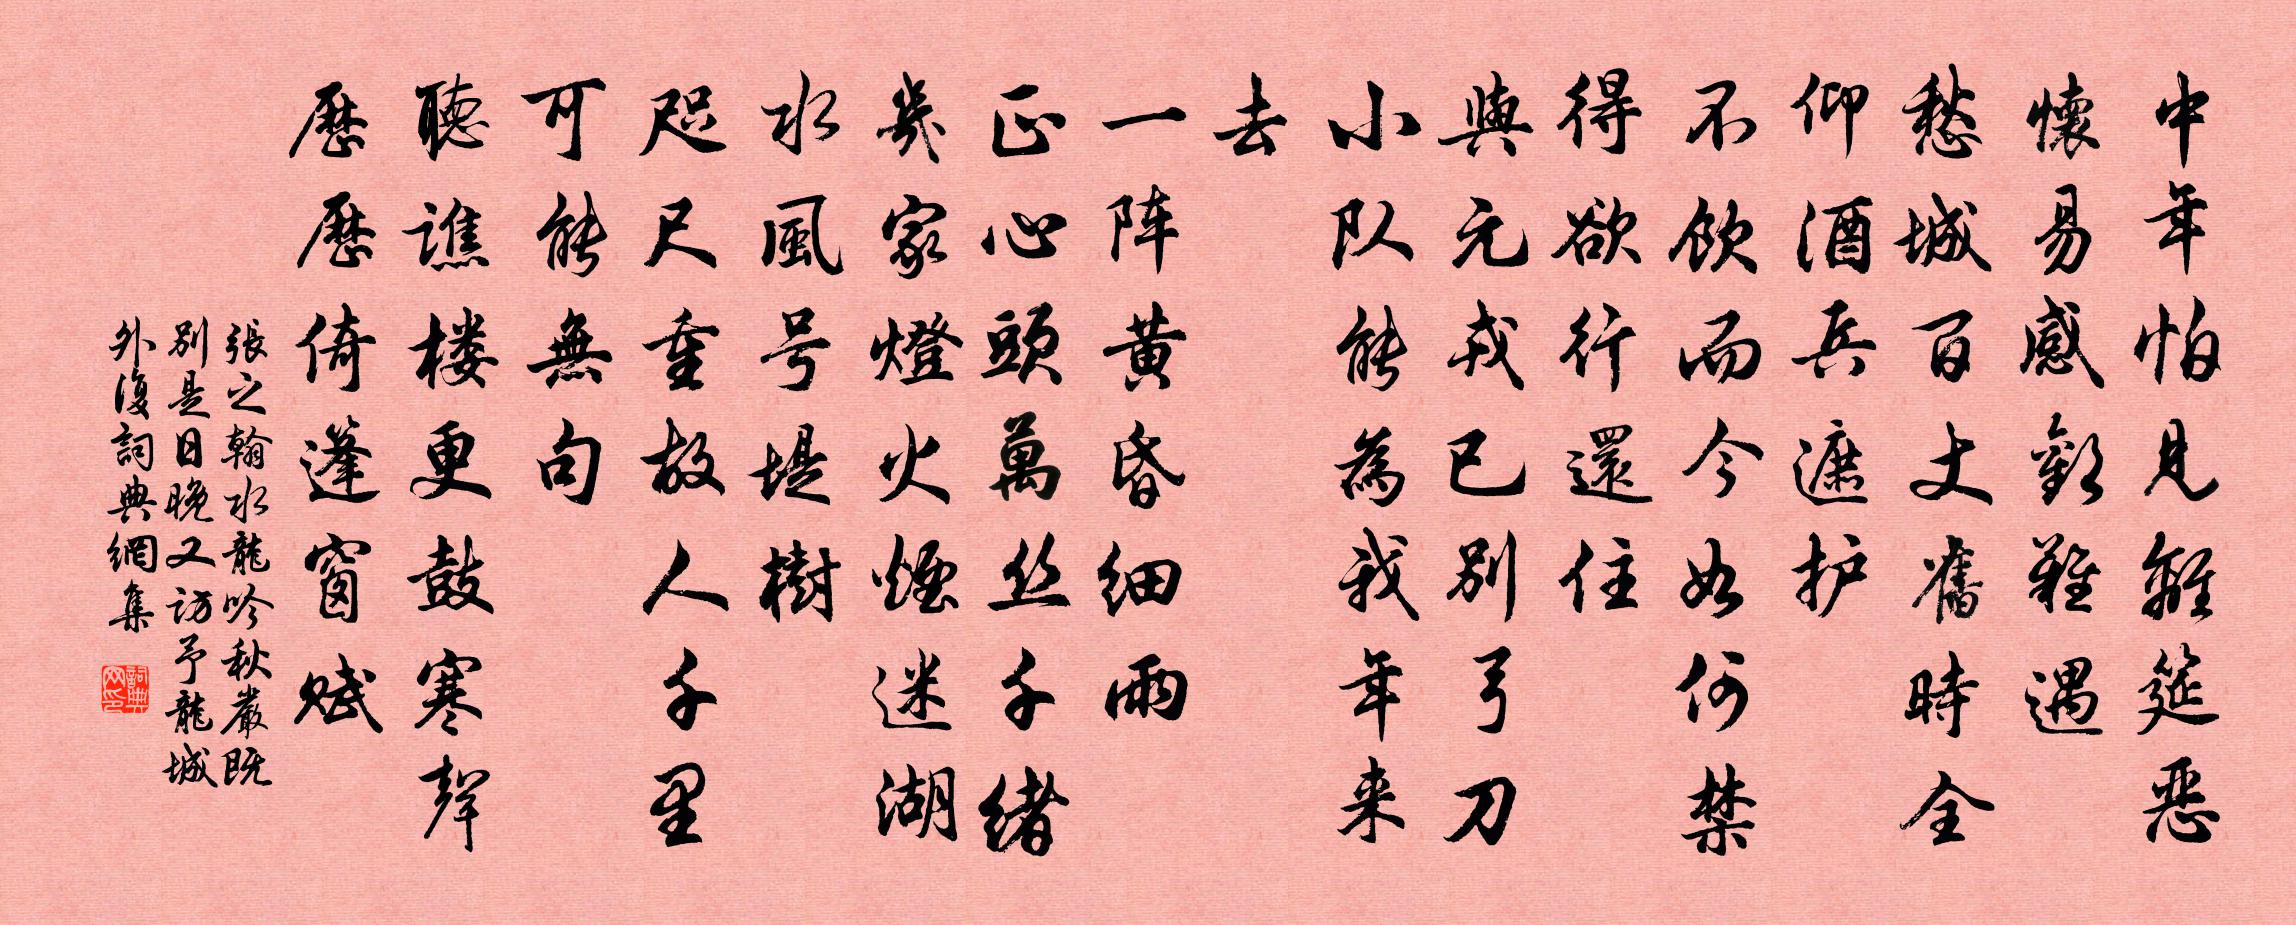 中年怕見離筵惡
懷易感歡難遇
愁城百丈舊時全
仰酒兵遮护
不飲而今如何禁
得欲行還住
與元戎已別弓刀
小队能為我年来
去
一阵黄昏细雨
正心頭萬丝千緒
幾家燈火煙迷湖
水風号堤樹
咫尺重故人千里
可能無句
聽譙楼更鼓寒聲
歷歷倚篷窗賦
張之翰水龍吟秋巖既
別是日晚又訪予龍城
外復詞典網集
詞典网印